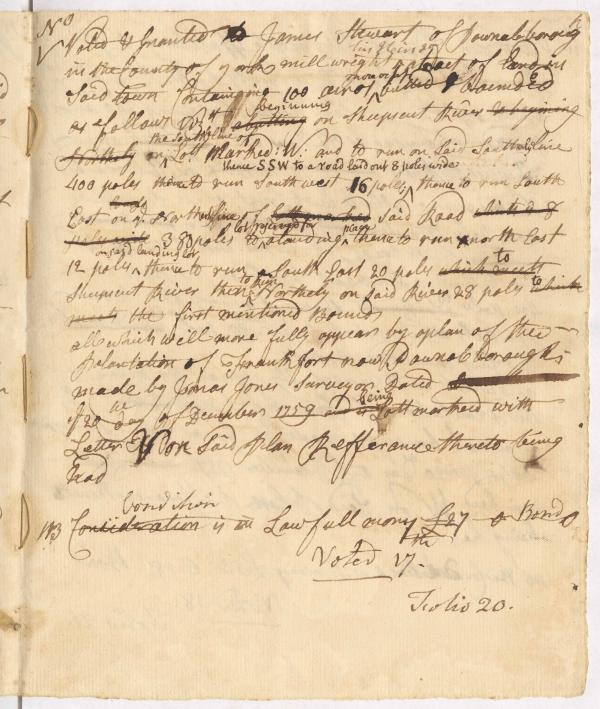 No
V Voted & Granted to James Stewart of Pownalborough
in the County of york millwright a tract of land in
more or less
Said town Containing 100 acres butted & bounded
beginning
as follows Viz abutting on Sheepscut River & begining
the Southerly line of
Northerly on Lott Marked: W: and to run on Said Southerly line
thence SSW to a road laid out 8 poles wide
400 poles thence to run South west 16 poles, thence to run South
East on ye Northerly line of lott marked Said Road which is 8
poles wide 38 poles to a landing place thence to run North East
on said landing
12 poles, thence to run South East 20 poles which meets to
to run
Sheepscut River thence Northerly on Said River 28 poles to which
meets the first mentioned Bounds
all which will more fully appear by a plan of the
Plantation of Frankfort now Pownalborough
made by Jonas Jones Surveyor Dated
ye 20th day of December 1759 and is being Lott marked with
Letter V on Said Plan Refferance thereto being
had
Condition
NB Consideration is in Lawfull money £27 - Bond
Voted 17th.
Folio 20.